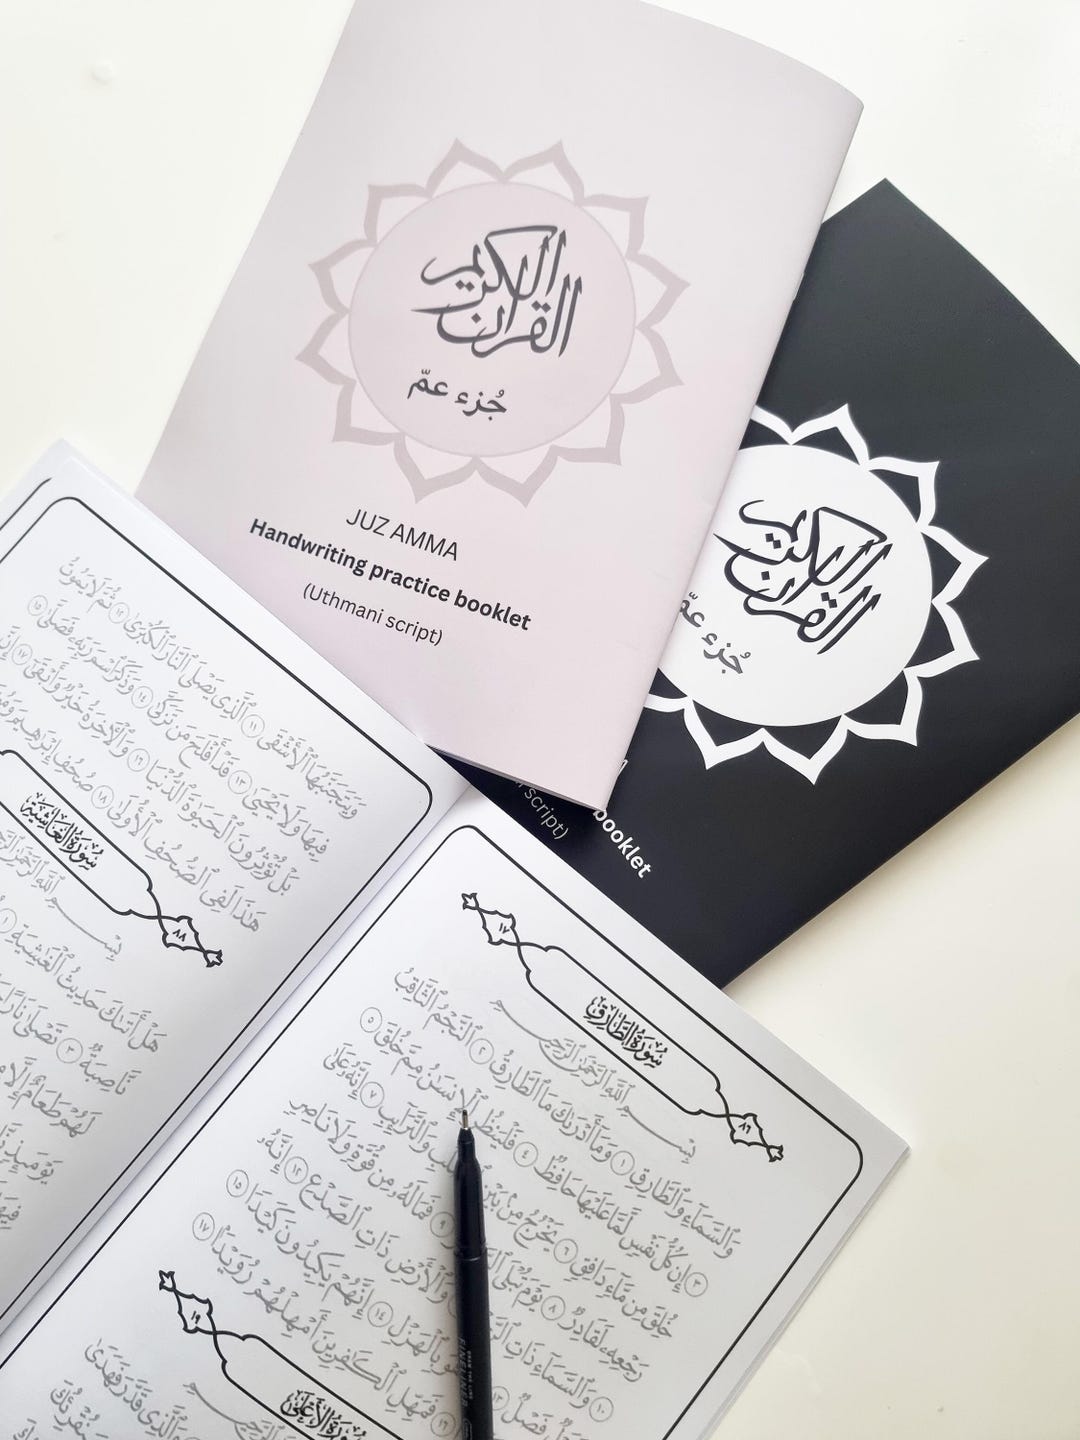 القرآن الكريم
جُزء عمّ
JUZ AMMA
Handwriting practice booklet
(Uthmani script)
القرآن الكريم
جُزء عمّ
booklet
script)
وَيَتَجَنَّبُهَا ٱلْأَشْقَى ١١ ٱلَّذِى يَصْلَى ٱلنَّارَ ٱلْكُبْرَىٰ ١٢ ثُمَّ لَا يَمُوتُ
فِيهَا وَلَا يَحْيَىٰ ١٣ قَدْ أَفْلَحَ مَن تَزَكَّىٰ ١٤ وَذَكَرَ ٱسْمَ رَبِّهِۦ فَصَلَّىٰ ١٥
بَلْ تُؤْثِرُونَ ٱلْحَيَوٰةَ ٱلدُّنْيَا ١٦ وَٱلْـَٔاخِرَةُ خَيْرٌ وَأَبْقَىٰٓ ١٧ إِنَّ
هَٰذَا لَفِى ٱلصُّحُفِ ٱلْأُولَىٰ ١٨ صُحُفِ إِبْرَٰهِيمَ
٨٨ سُورَةُ الغَاشِيَةِ
بِسْمِ ٱللَّهِ ٱلرَّحْمَٰنِ
هَلْ أَتَىٰكَ حَدِيثُ ٱلْغَٰشِيَةِ ١
نَّاصِبَةٌ ٣ تَصْلَىٰ نَارًا
لَهُمْ طَعَامٌ إِلَّا
يَوْمَئِذٍ
٨٦ سُورَةُ الطَّارِقِ ١٧
بِسْمِ ٱللَّهِ ٱلرَّحْمَٰنِ ٱلرَّحِيمِ
وَٱلسَّمَآءِ وَٱلطَّارِقِ ١ وَمَآ أَدْرَىٰكَ مَا ٱلطَّارِقُ ٢ ٱلنَّجْمُ ٱلثَّاقِبُ
٣ إِن كُلُّ نَفْسٍ لَّمَّا عَلَيْهَا حَافِظٌ ٤ فَلْيَنظُرِ ٱلْإِنسَٰنُ مِمَّ خُلِقَ ٥
خُلِقَ مِن مَّآءٍ دَافِقٍ ٦ يَخْرُجُ مِنۢ بَيْنِ وَٱلتَّرَآئِبِ ٧ إِنَّهُۥ عَلَىٰ
رَجْعِهِۦ لَقَادِرٌ ٨ يَوْمَ تُبْلَى ٩ فَمَا لَهُۥ مِن قُوَّةٍ وَلَا نَاصِرٍ
١٠ وَٱلسَّمَآءِ ذَاتِ وَٱلْأَرْضِ ذَاتِ ٱلصَّدْعِ ١٢ إِنَّهُۥ
لَقَوْلٌ فَصْلٌ ١٣ بِٱلْهَزْلِ ١٤ إِنَّهُمْ يَكِيدُونَ كَيْدًا ١٥
١٦ فَمَهِّلِ ٱلْكَٰفِرِينَ أَمْهِلْهُمْ رُوَيْدًۢا ١٧
سُورَةُ الأَعْلَىٰ ١٩
وَٱلَّذِى قَدَّرَ فَهَدَىٰ
سَنُقْرِئُكَ
FINELINER